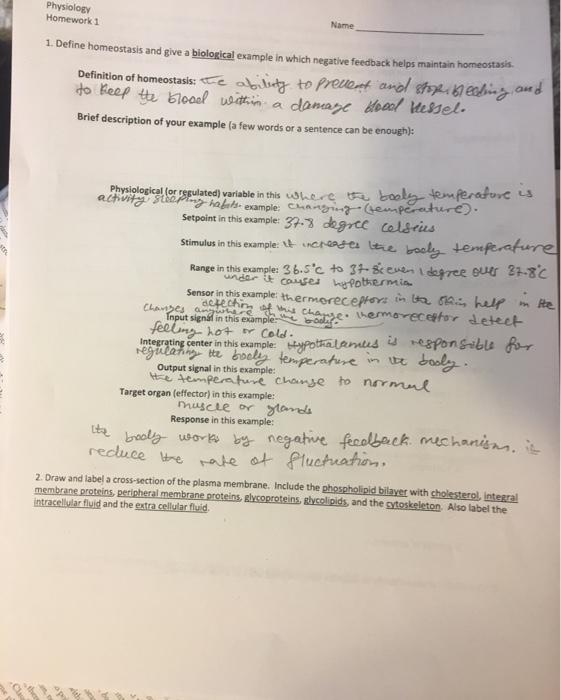 Physiology
Homework 1
Name
1. Define homeostasis and give a biological example in which negative feedback helps maintain homeostasis.
Definition of homeostasis: the ability to prevent and stop bleeding, and
to keep the blood within a damage blood vessel.
Brief description of your example (a few words or a sentence can be enough):
Physiological (or regulated) variable in this where the body temperature is
activity sleeping habits. example: changing (temperature).
Setpoint in this example: 37.8 degree celsius
Stimulus in this example: it increases the body temperature
Range in this example: 36.5°c to 37.8c even 1 degree over 37.8°C
under it causes hypothermia
Sensor in this example: thermoreceptors in the skin help in the
detection of this change. thermoreceptor detect
changes anywhere in the body.
Input signal in this example:
feeling hot or cold.
Integrating center in this example: Hypothalamus is responsible for
regulating the body temperature in the body.
Output signal in this example:
the temperature change to normal
Target organ (effector) in this example:
muscle or glands
Response in this example:
the body works by negative feedback mechanism. it
reduce the rate of fluctuation.
2. Draw and label a cross-section of the plasma membrane. Include the phospholipid bilayer with cholesterol, integral
membrane proteins, peripheral membrane proteins, glycoproteins, glycolipids, and the cytoskeleton. Also label the
intracellular fluid and the extra cellular fluid.